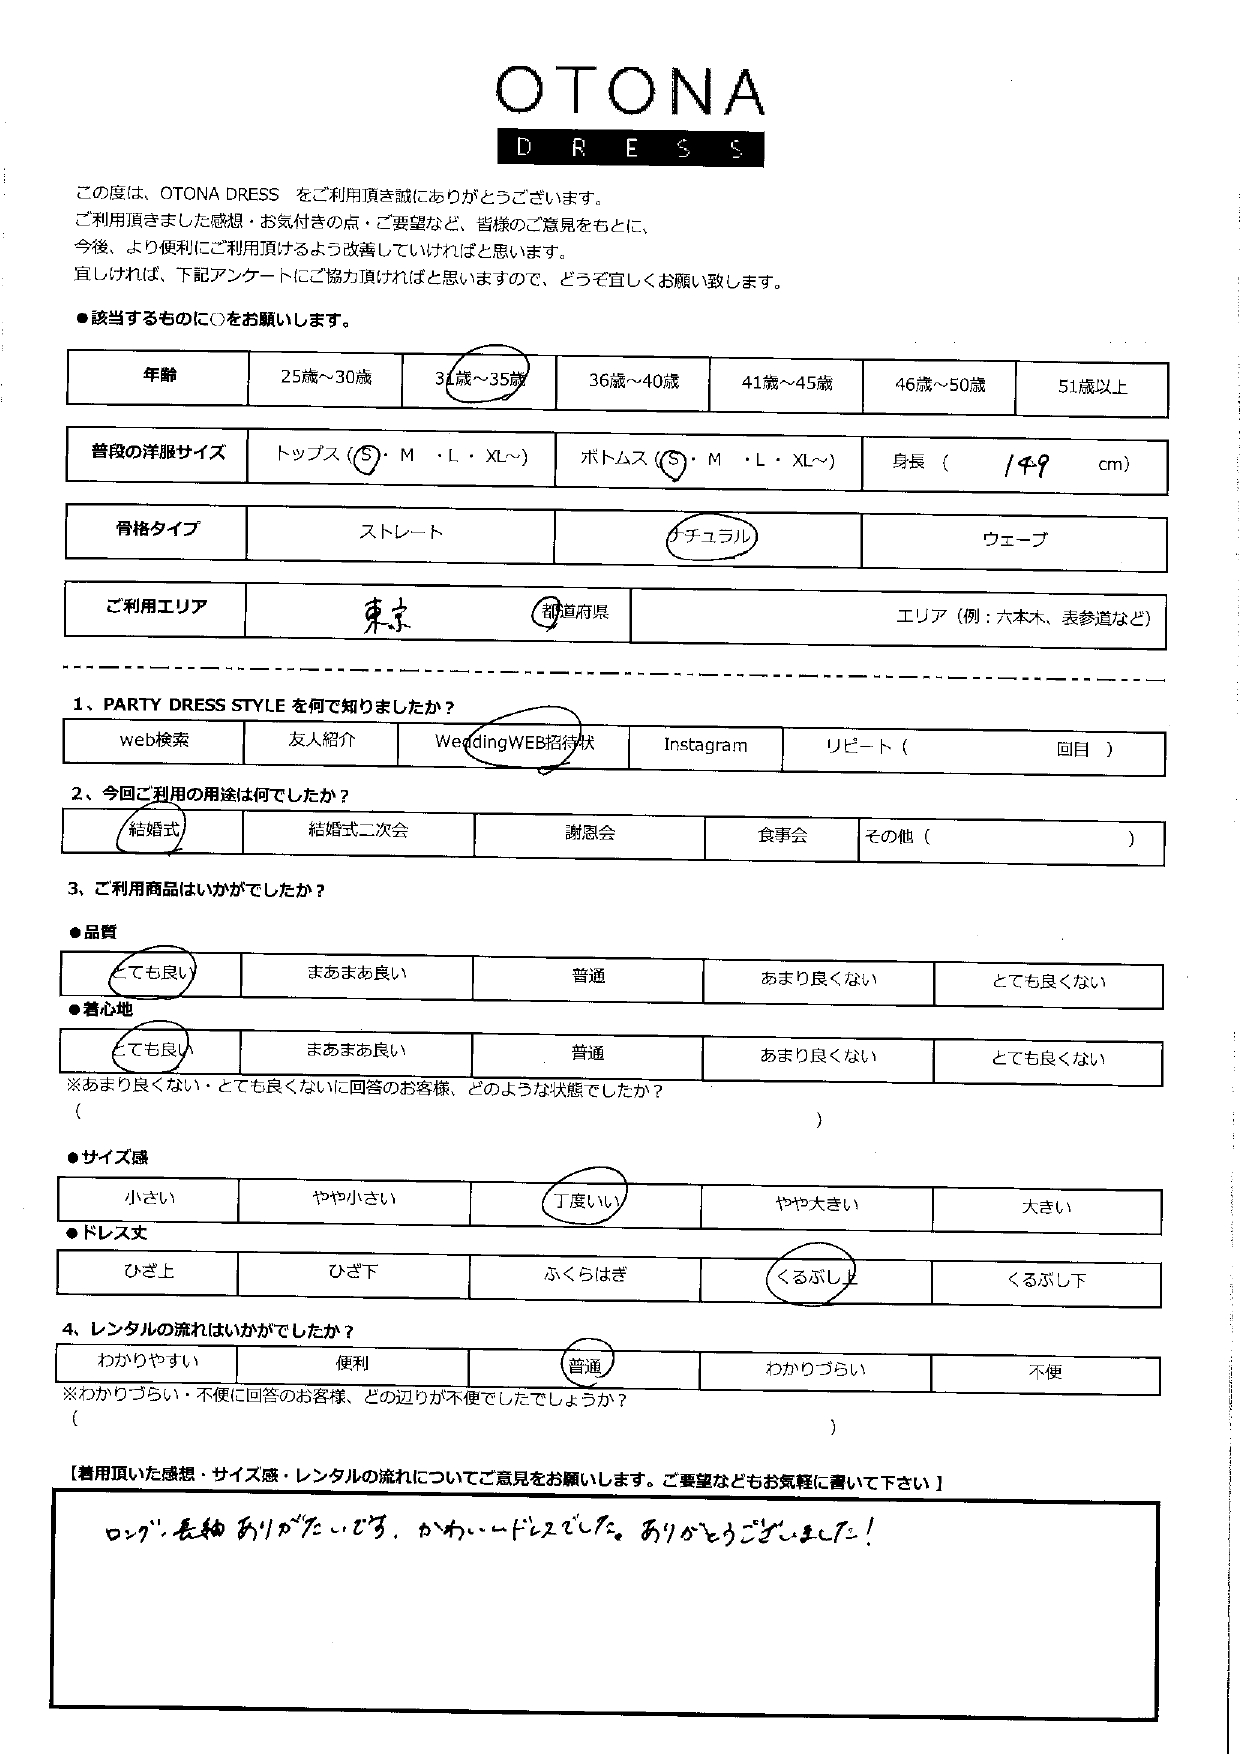 OTONA
DRESS
この度は、OTONA DRESS をご利用頂き誠にありがとうございます。
ご利用頂きました感想・お気付きの点・ご要望など、皆様のご意見をもとに、
今後、より便利にご利用頂けるよう改善していければと思います。
宜しければ、下記アンケートにご協力頂ければと思いますので、どうぞ宜しくお願い致します。
●該当するものに○をお願いします。
年齢 25歳～30歳 31歳～35歳 36歳～40歳 41歳～45歳 46歳～50歳 51歳以上
普段の洋服サイズ トップス（S・ M ・L ・ XL～） ボトムス（S・ M ・L ・ XL～） 身長 （ 149 cm）
骨格タイプ ストレート ナチュラル ウェーブ
ご利用エリア 東京 都道府県 エリア（例：六本木、表参道など）
1、PARTY DRESS STYLE を何で知りましたか？
web検索 友人紹介 WeddingWEB招待状 Instagram リピート（ 回目 ）
2、今回ご利用の用途は何でしたか？
結婚式 結婚式二次会 謝恩会 食事会 その他（ ）
3、ご利用商品はいかがでしたか？
●品質
とても良い まあまあ良い 普通 あまり良くない とても良くない
●着心地
とても良い まあまあ良い 普通 あまり良くない とても良くない
※あまり良くない・とても良くないに回答のお客様、どのような状態でしたか？
（ ）
●サイズ感
小さい やや小さい 丁度いい やや大きい 大きい
●ドレス丈
ひざ上 ひざ下 ふくらはぎ くるぶし上 くるぶし下
4、レンタルの流れはいかがでしたか？
わかりやすい 便利 普通 わかりづらい 不便
※わかりづらい・不便に回答のお客様、どの辺りが不便でしたでしょうか？
（ ）
【着用頂いた感想・サイズ感・レンタルの流れについてご意見をお願いします。ご要望などもお気軽に書いて下さい 】
ロング、長袖 ありがたいです。かわいいドレスでした。ありがとうございました！